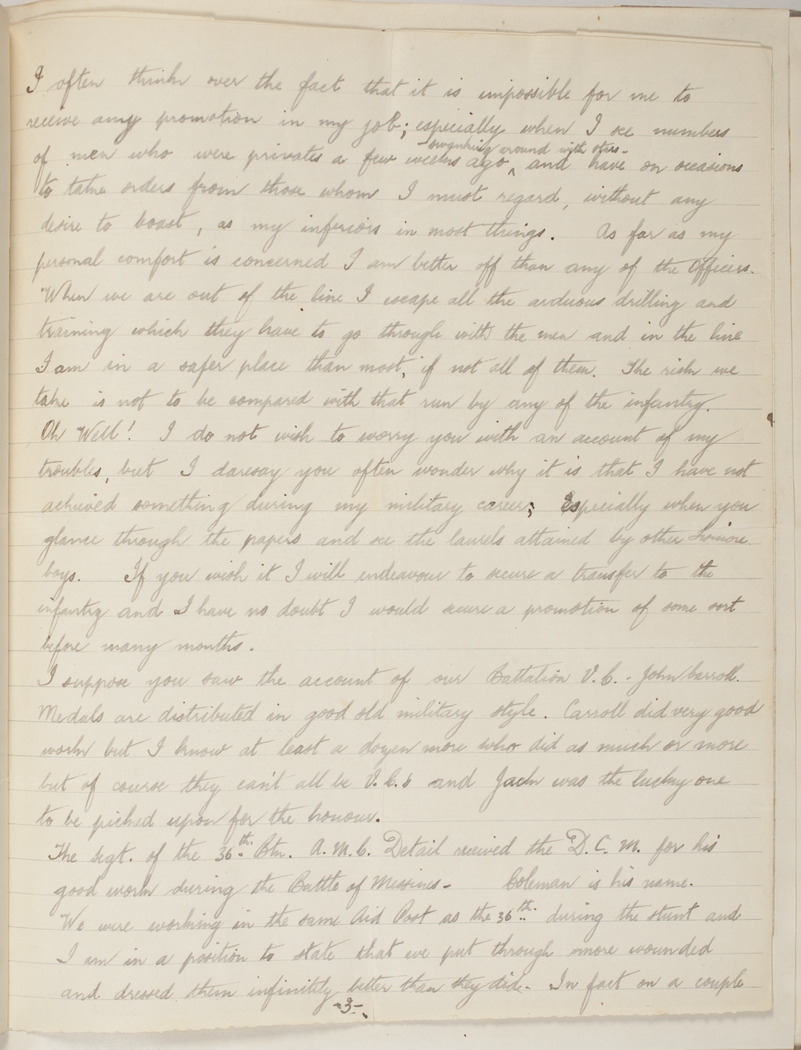 I often think over the fact that it is impossible for me to
receive any promotion in my job; especially when I see numbers
swanking around with stars -
of men who were privates a few weeks ago ^ and have on occasions
to take orders from those whom I must regard, without any
desire to boast, as my inferiors in most things. As far as my
personal comfort is concerned I am better off than any of the Officers.
When we are out of the line I escape all the arduous drilling and
training which they have to go through with the men and in the line
I am in a safer place than most, if not all of them. The risk we
take is not to be compared with that run by any of the infantry.
Oh Well! I do not wish to worry you with an account of my
troubles, but I daresay you often wonder why it is that I have not
achieved something during my military career; Especially when you
glance through the papers and see the laurels attained by other
boys. If you wish it I will endeavour to secure a transfer to the
infantry and I have no doubt I would secure a promotion of some sort
before many months.
I suppose you saw the account of our Battalion V.C. - John Carroll.
Medals are distributed in good old military style. Carroll did very good
work but I know at least a dozen more who did as much or more
but of course they can't all be V.C.s and Jack was the lucky one
to be picked upon for the honour.
The Segt. of the 36th Btn. A.M.C. Detail received the D.C.M. for his
good work during the Battle of Messines - Coleman is his name.
We were working in the same Aid Post as the 36th during the stunt and
I am in a position to state that we put through more wounded
and dressed them infinitely better than they did. In fact on a couple
-3-